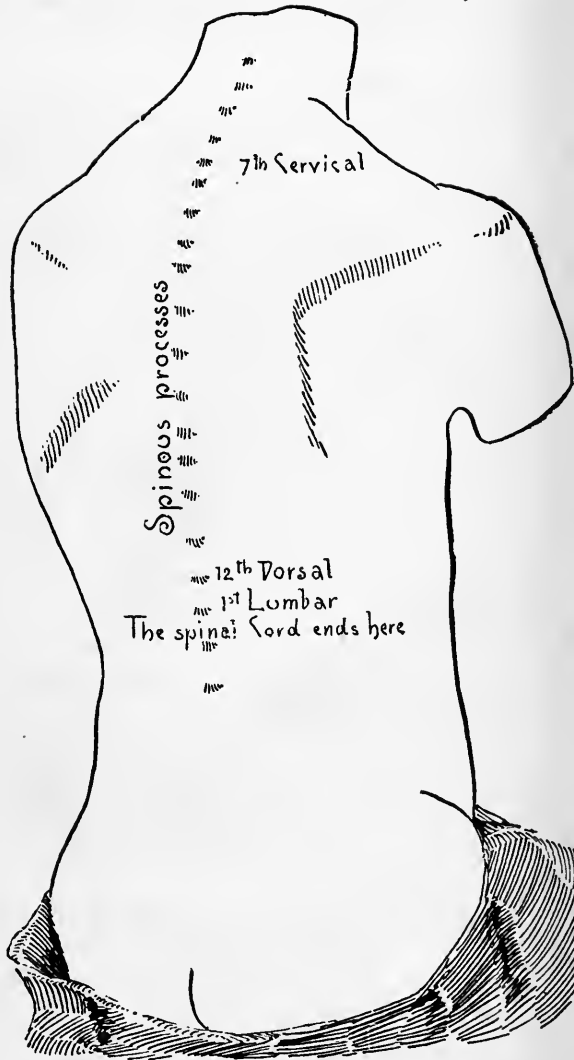 7th Cervical
Spinous processes
12th Dorsal
1st Lumbar
The spinal Cord ends here